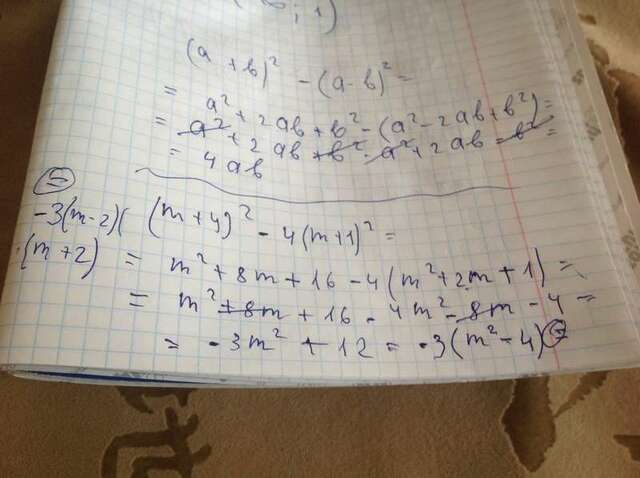 ; 1)
(a + b)² - (a - b)² =
= a² + 2ab + b² - (a² - 2ab + b²) =
= a² + 2ab + b² - a² + 2ab - b² =
= 4ab
(m + 4)² - 4(m + 1)² =
= m² + 8m + 16 - 4(m² + 2m + 1) =
= m² + 8m + 16 - 4m² - 8m - 4 =
= -3m² + 12 = -3(m² - 4) =
= -3(m - 2)(
·(m + 2)